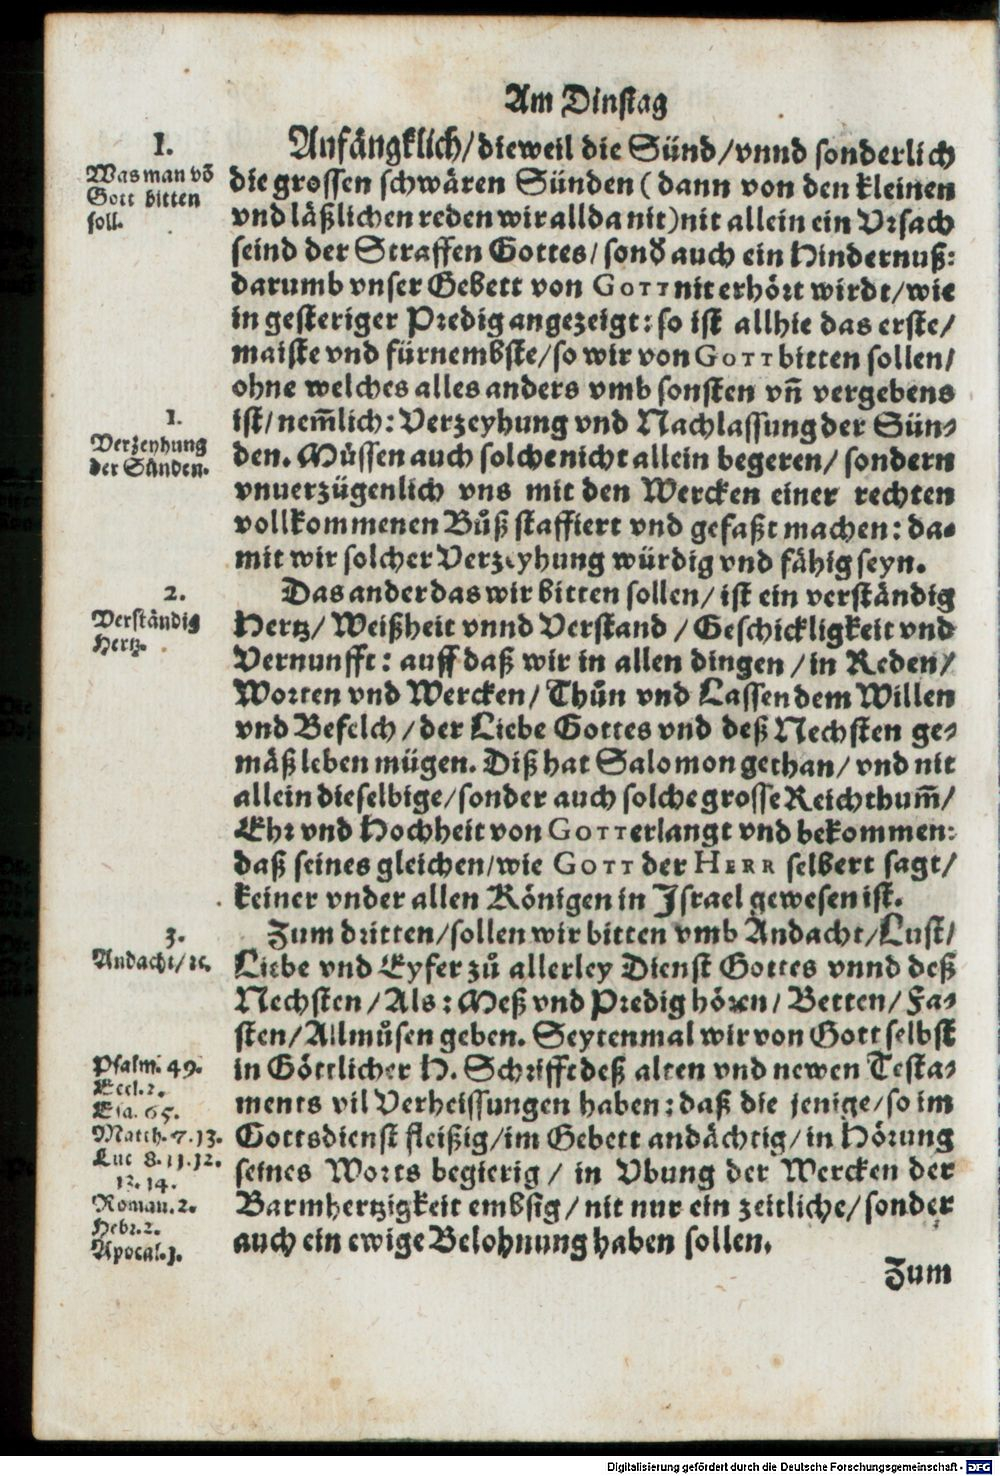 Am Dinstag
I.
Was man võ
Gott bitten
soll.
Anfängklich/dieweil die Sünd/vnnd sonderlich
die grossen schwären Sünden (dann von den kleinen
vnd läßlichen reden wir allda nit) nit allein ein Vrsach
seind der Straffen Gottes/sonđ auch ein Hindernuß:
darumb vnser Gebett von GOTT nit erhört wirdt/wie
in gesteriger Predig angezeigt: so ist allhie das erste/
maiste vnd fürnembste/so wir von GOTT bitten sollen/
ohne welches alles anders vmb sonsten vñ vergebens
1.
Verzeyhung
der Sünden.
ist/nem̃lich: Verzeyhung vnd Nachlassung der Sün-
den. Müssen auch solche nicht allein begeren/sondern
vnuerzügenlich vns mit den Wercken einer rechten
vollkommenen Bůß staffiert vnd gefaßt machen: da-
mit wir solcher Verzeyhung würdig vnd fähig seyn.
2.
Verständig
Hertz.
Das ander das wir bitten sollen/ist ein verständig
Hertz/Weißheit vnnd Verstand/Geschickligkeit vnd
Vernunfft: auff daß wir in allen dingen/in Reden/
Worten vnd Wercken/Thůn vnd Lassen dem Willen
vnd Befelch/der Liebe Gottes vnd deß Nechsten ge-
mäß leben mügen. Diß hat Salomon gethan/vnd nit
allein dieselbige/sonder auch solche grosse Reichthum̃/
Ehr vnd Hochheit von GOTT erlangt vnd bekommen:
daß seines gleichen/wie GOTT der HERR selbert sagt/
keiner vnder allen Königen in Israel gewesen ist.
3.
Andacht/ꝛc.
Zum dritten/sollen wir bitten vmb Andacht/Lust/
Liebe vnd Eyfer zů allerley Dienst Gottes vnnd deß
Nechsten/Als: Meß vnd Predig hören/Betten/Fa-
sten/Allmůsen geben. Seytenmal wir von Gott selbst
Psalm. 49.
Eccl. 2.
Esa. 65.
Matth. 7. 13.
Luc 8. 11. 12.
13. 14.
Roman. 2.
Hebr. 2.
Apocal. 3.
in Göttlicher H. Schrifft deß alten vnd newen Testa-
ments vil Verheissungen haben: daß die jenige/so im
Gottsdienst fleißig/im Gebett andächtig/in Hörung
seines Worts begierig/in Vbung der Wercken der
Barmhertzigkeit embsig/nit nur ein zeitliche/sonder
auch ein ewige Belohnung haben sollen.
Zum
Digitalisierung gefördert durch die Deutsche Forschungsgemeinschaft - DFG